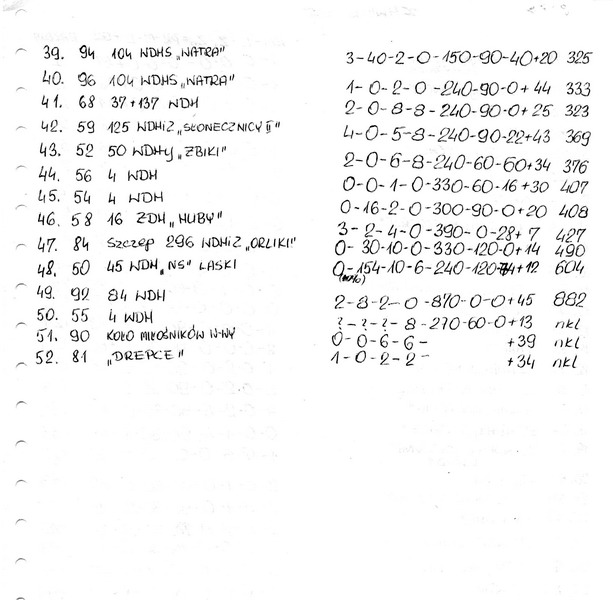 39. 94 104 WDHS „WATRA" 3-40-2-0-150-90-40+20 325
40. 96 104 WDHS „WATRA" 1-0-2-0-240-90-0+44 333
41. 68 37+137 WDH 2-0-8-8-240-90-0+25 323
42. 59 125 WDHiZ „SŁONECZNICY II" 4-0-5-8-240-90-22+43 369
43. 52 50 WDHy „ŻBIKI" 2-0-6-8-240-60-60+34 376
44. 56 4 WDH 0-0-1-0-330-60-16+30 407
45. 54 4 WDH 0-16-2-0-300-90-0+20 408
46. 58 16 ZDH „HUBY" 3-2-4-0-390-0-28+7 427
47. 84 Szczep 296 WDHiZ „ORLIKI" 0-30-10-0-330-120-0+14 490
48. 50 45 WDH „NS" LASKI 0-154-10-6-240-120-74+12 604
49. 92 84 WDH 2-8-2-0-870-0-0+45 882
50. 55 4 WDH ?-?-?-8-270-60-0+13 nkl
51. 90 KOŁO MIŁOŚNIKÓW W-WY 0-0-6-6- +39 nkl
52. 81 „DREPCE" 1-0-2-2- +34 nkl